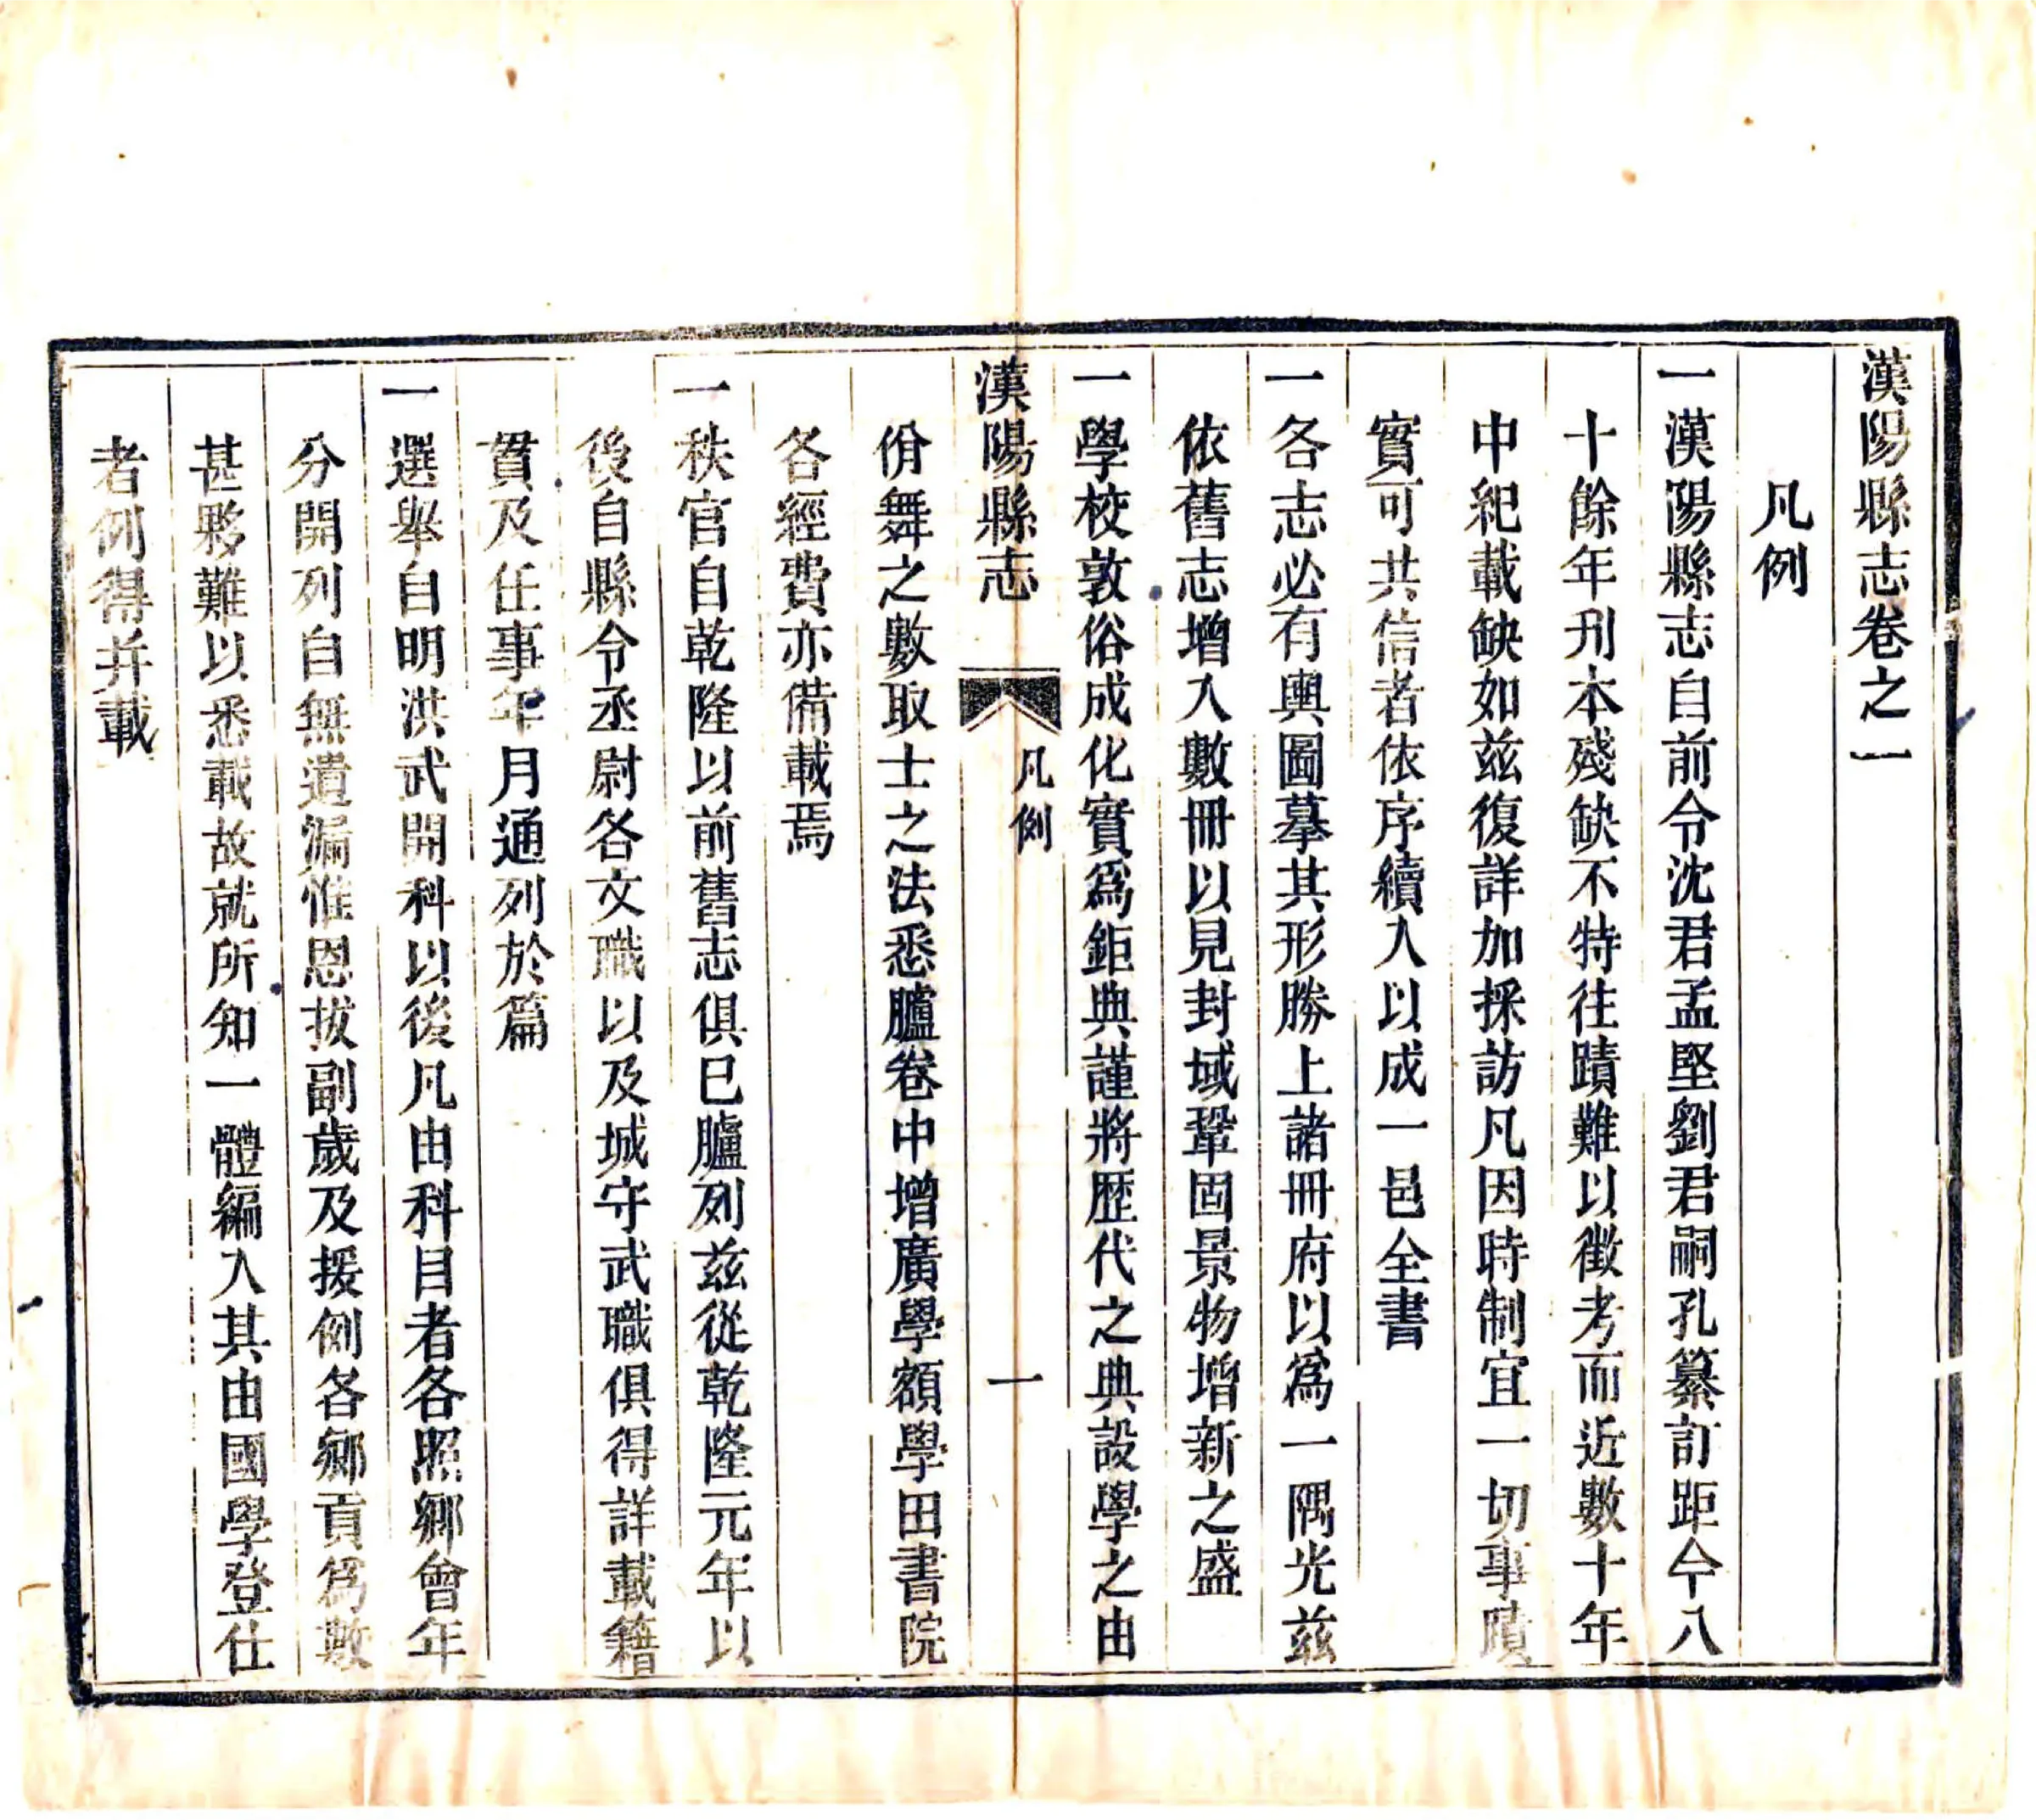 漢陽縣志卷之一
凡例
一漢陽縣志自前令沈君孟堅劉君嗣孔纂訂距今八
十餘年刋本殘缺不特往蹟難以徵考而近數十年
中紀載缺如兹復詳加採訪凡因時制宜一切事蹟
實可共信者依序續入以成一邑全書
一各志必有輿圖摹其形勝上諸冊府以爲一隅光兹
依舊志增入數冊以見封域鞏固景物增新之盛
一學校敦俗成化實爲鉅典謹將歴代之典設學之由
漢陽縣志
凡例
一
佾舞之數取士之法悉臚卷中增廣學額學田書院
各經費亦備載焉
一秩官自乾隆以前舊志俱已臚列兹從乾隆元年以
後自縣令丞尉各文職以及城守武職俱得詳載籍
貫及任事年月通列於篇
一選舉自明洪武開科以後凡由科目者各照鄉會年
分開列自無遺漏惟恩拔副歲及援例各鄉貢爲數
甚夥難以悉載故就所知一體編入其由國學登仕
者例得并載